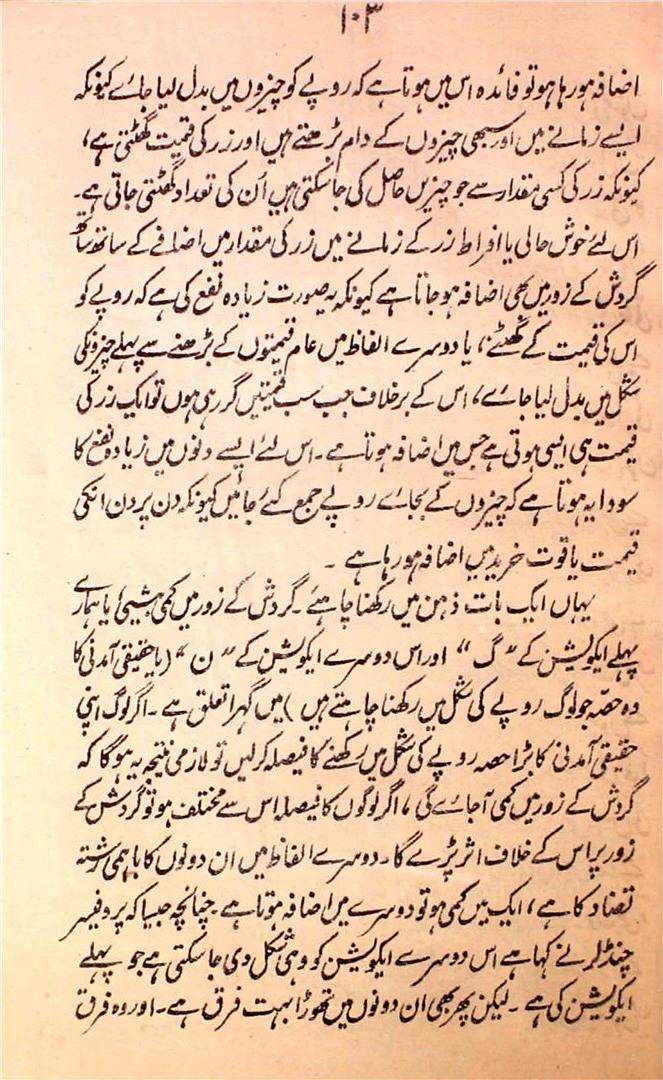 ۱۰۳
اضافہ ہو رہا ہو تو فائدہ اس میں ہوتا ہے کہ روپے کو چیزوں میں بدل لیا جائے کیونکہ
ایسے زمانے میں اور سبھی چیزوں کے دام بڑھتے ہیں اور زر کی قیمت گھٹتی ہے،
کیونکہ زر کی کسی مقدار سے جو چیزیں حاصل کی جا سکتی ہیں اُن کی تعداد گھٹتی جاتی ہے۔
اس لئے خوش حالی یا افراط زر کے زمانے میں زر کی مقدار میں اضافے کے ساتھ ساتھ
گردش کے زور میں بھی اضافہ ہو جاتا ہے کیونکہ یہ صورت زیادہ نفع کی ہے کہ روپے کو
اس کی قیمت کے گھٹنے، یا دوسرے الفاظ میں عام قیمتوں کے بڑھنے سے پہلے چیزونکی
شکل میں بدل لیا جائے، اس کے برخلاف جب سب قیمتیں گر رہی ہوں تو ایک زر کی
قیمت ہی ایسی ہوتی ہے جس میں اضافہ ہوتا ہے۔ اس لئے ایسے دنوں میں زیادہ نفع کا
سودا یہ ہوتا ہے کہ چیزوں کے بجائے روپے جمع کئے جائیں کیونکہ دن پر دن انکی
قیمت یا قوت خرید میں اضافہ ہو رہا ہے ۔
یہاں ایک بات ذہن میں رکھنا چاہئے۔ گردش کے زور میں کمی بیشی یا ہمارے
پہلے ایکویشن کے "گ" اور اس دوسرے ایکویشن کے "ن" (یا حقیقی آمدنی کا
وہ حصہ جو لوگ روپے کی شکل میں رکھنا چاہتے ہیں) میں گہرا تعلق ہے۔ اگر لوگ اپنی
حقیقی آمدنی کا بڑا حصہ روپے کی شکل میں رکھنے کا فیصلہ کر لیں تو لازمی نتیجہ یہ ہوگا کہ
گردش کے زور میں کمی آ جائے گی، اگر لوگوں کا فیصلہ اس سے مختلف ہو تو گردش کے
زور پر اس کے خلاف اثر پڑے گا۔ دوسرے الفاظ میں ان دونوں کا باہمی رشتہ
تضاد کا ہے، ایک میں کمی ہو تو دوسرے میں اضافہ ہوتا ہے۔ چنانچہ جیسا کہ پروفیسر
چنڈلر نے کہا ہے اس دوسرے ایکویشن کو وہی شکل دی جا سکتی ہے جو پہلے
ایکویشن کی ہے۔ لیکن پھر بھی ان دونوں میں تھوڑا بہت فرق ہے۔ اور وہ فرق